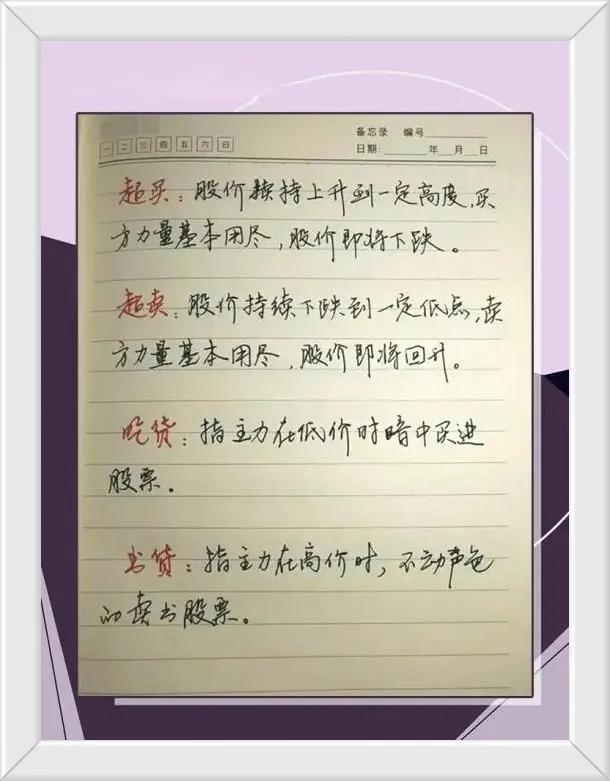 一 二 三 四 五 六 日
备忘录 编号
日期: 年 月 日
超买：股价持续上升到一定高度,买
方力量基本用尽，股价即将下跌。
超卖：股价持续下跌到一定低点,卖
方力量基本用尽，股价即将回升。
吃货：指主力在低价时暗中买进
股票。
出货：指主力在高价时，不动声色
的卖出股票。